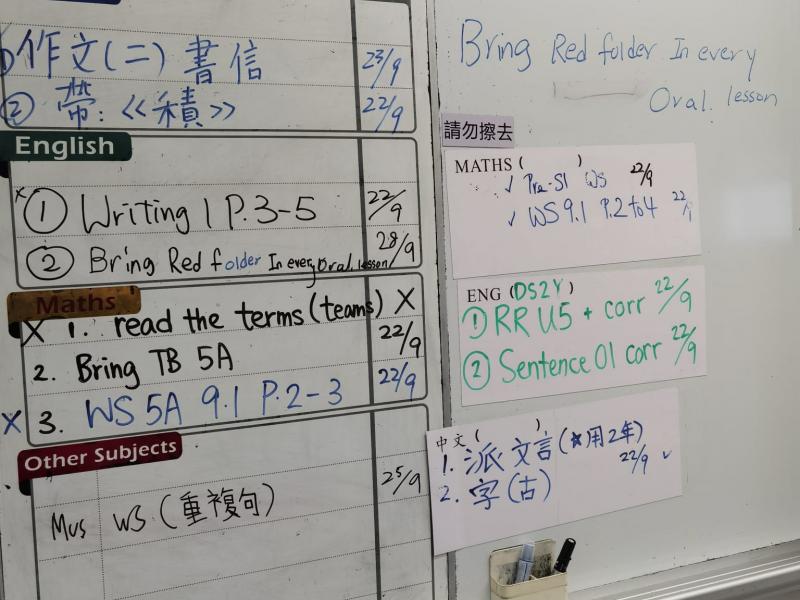 作文(二) 書信 23/9
② 帶:《積》 22/9
English
x ① Writing 1 P.3-5 22/9
② Bring Red folder In every Oral. lesson 28/9
Maths
X 1. read the terms (teams) X
2. Bring TB 5A 22/9
X 3. WS 5A 9.1 P.2-3 22/9
Other Subjects
Mus WS (重複句) 25/9
Bring Red folder In every
Oral. lesson
請勿擦去
MATHS ( )
✓ Pre-S1 WS 22/9
✓ WS 9.1 P.2 to 4
ENG (DS2Y)
① RR U5 + corr 22/9
② Sentence 01 corr 22/9
中文 ( )
1. 派文言(★用2年)
22/9 ✓
2. 字(古)